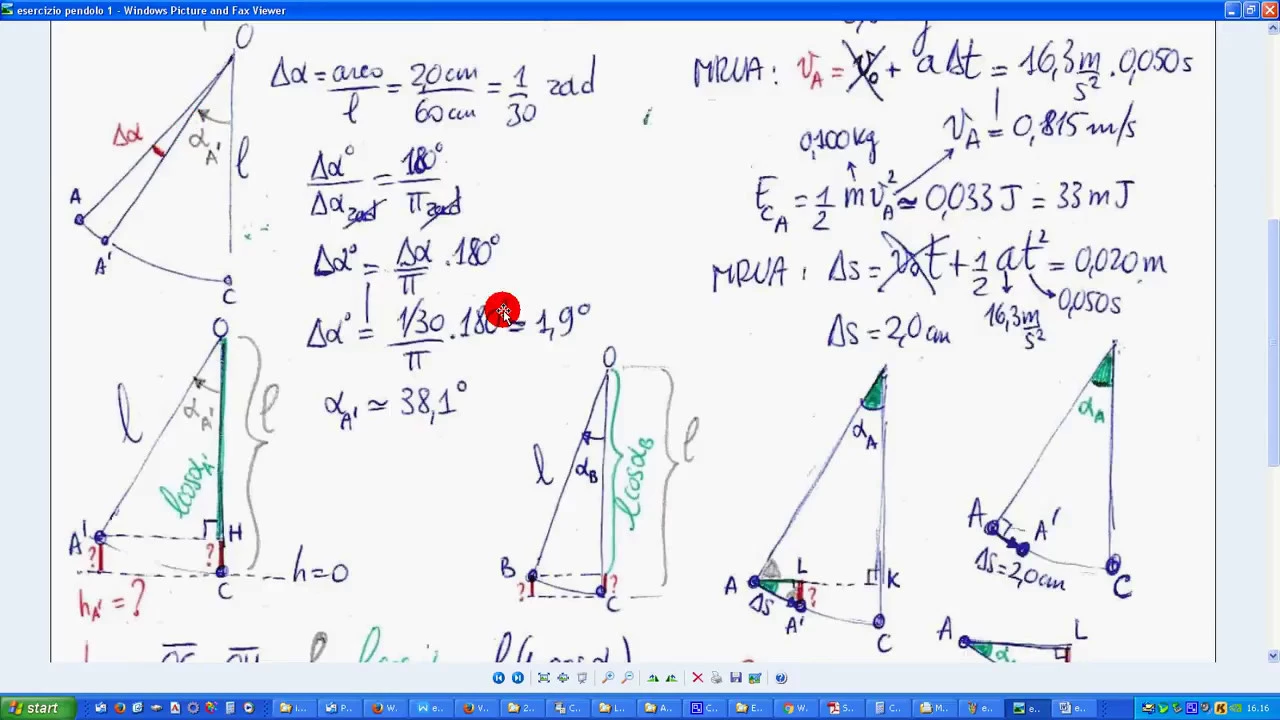 esercizio pendolo 1 - Windows Picture and Fax Viewer
O
Δα = arco/l = 2,0cm/60cm = 1/30 rad
Δα
α_A'
l
A
A'
C
Δα°/Δα_rad = 180°/π_rad
Δα° = Δα/π · 180°
Δα° = 1/30/π · 180° = 1,9°
α_A' ≃ 38,1°
MRUA: v_A = v_0 + aΔt = 16,3 m/s² · 0,050s
v_A = 0,815 m/s
0,100kg
E_CA = 1/2 m v_A² ≃ 0,033 J = 33 mJ
MRUA: Δs = v_0t + 1/2 at² = 0,020 m
16,3 m/s²
0,050s
Δs = 2,0 cm
O
l
α_A'
l cosα_A'
l
A'
H
?
?
C
h=0
h_A' = ?
O
l
α_B
l cosα_B
l
B
?
?
C
α_A
A
L
K
Δs
?
A'
C
α_A
A
A'
Δs=2,0cm
C
A
L
α
start
16.16